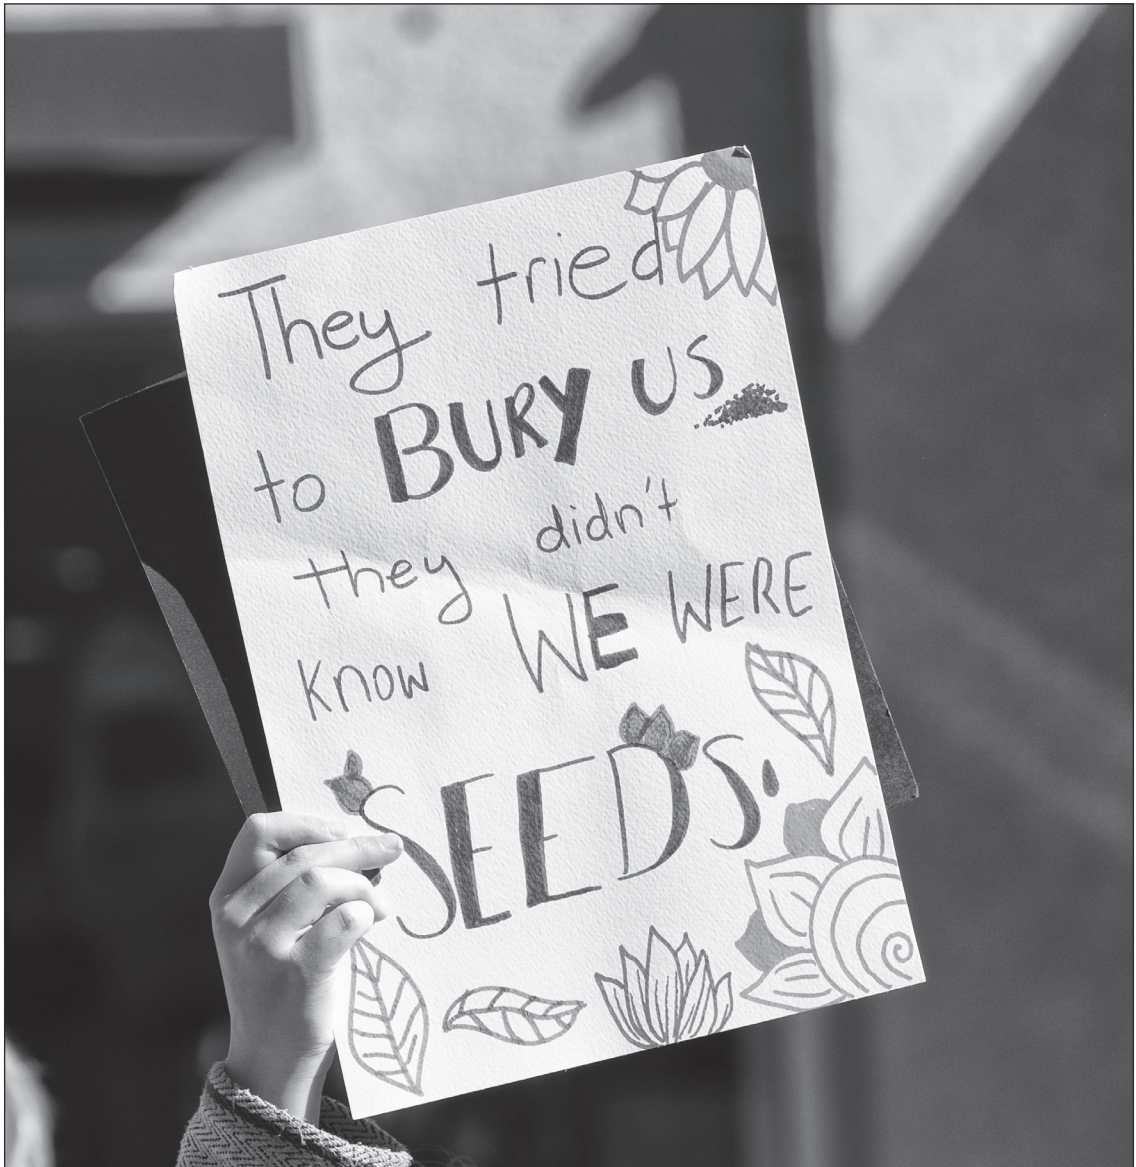 They tried
to BURY US
they didn't
know WE WERE
SEEDS.